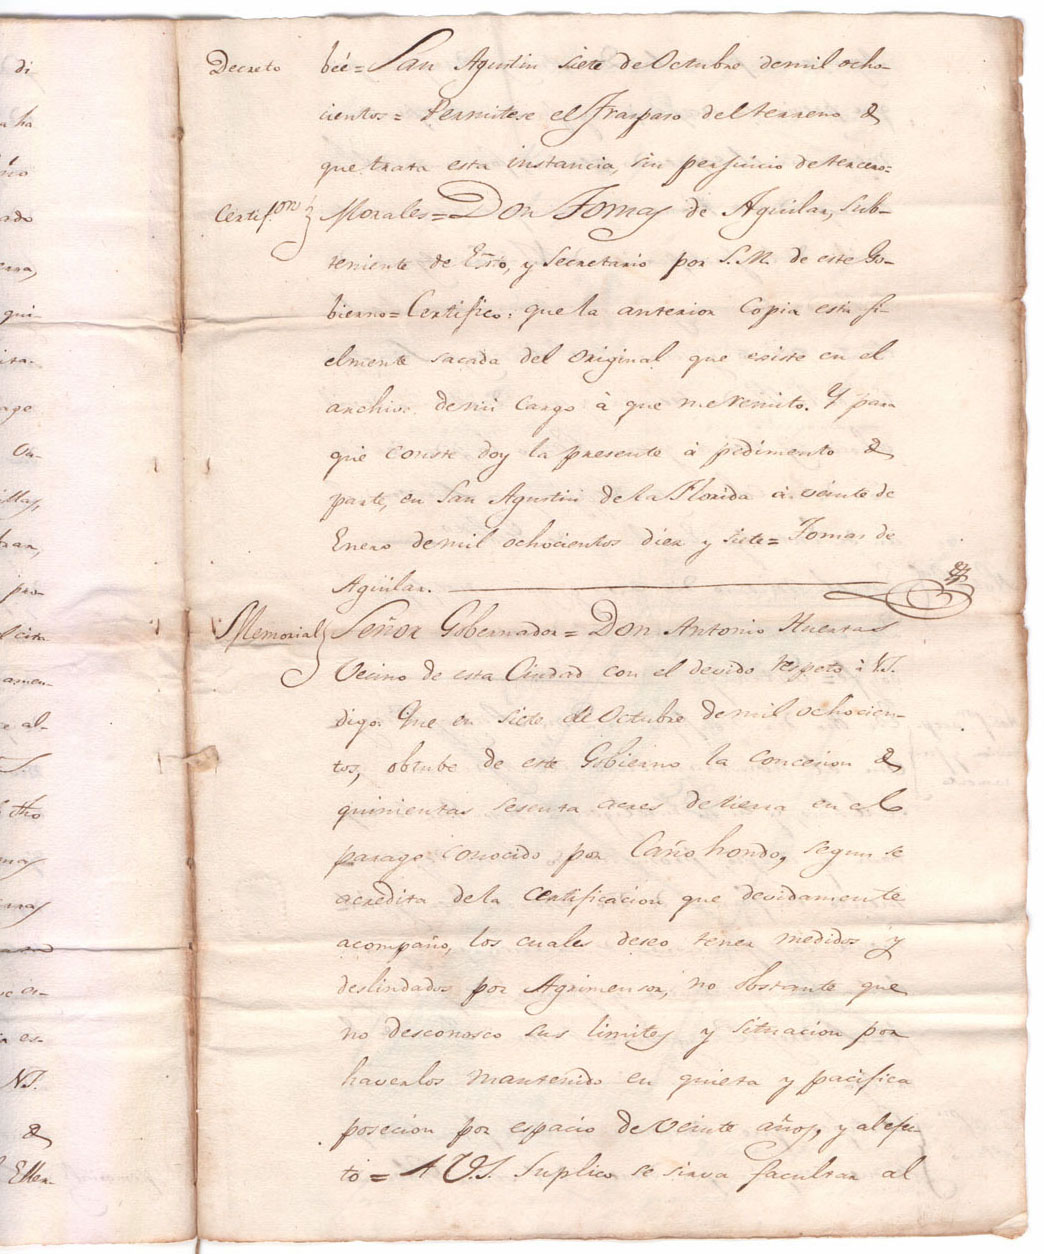 di
Decreto beé= San Agustin siete de Octubre demil ocho-
cientos= Permitese el Traspaso del terreno de
ha
que trata esta instancia, sin perjuicio de tercero=
Certif.on Morales= Don Tomas de Aguilar, Sub-
ado
teniente de Exto, y Secretario por S.M. de este Go-
erra,
bierno= Certifico: que la anterior Copia está fi-
qui-
elmente sacada del original que existe en el
archivo demi cargo à que me remito. Y para
que conste doy la presente à pedimento de
parte, en San Agustin dela Florida à veinte de
Enero demil ochocientos diez y siete= Tomas de
Aguilar.
Memorial Señor Gobernador= Don Antonio Huertas
Vecino de esta Ciudad con el devido respeto à V.S.
digo: Que en siete de Octubre demil ochocien-
al-
tos, obtube de este Gobierno la Concesion de
quinientas sesenta acres detierra en el
dho
parage conocido por Caño hondo, segun se
acredita dela Certificacion que devidamente
acompaño, los cuales deseo tener medidos y
deslindados por Agrimensor, no obstante que
no desconosco sus limites y situacion por
es-
haverlos mantenido en quieta y pacifica
posecion por espacio de veinte años, y al efec
de
to= A V.S. Suplico se sirva facultar al